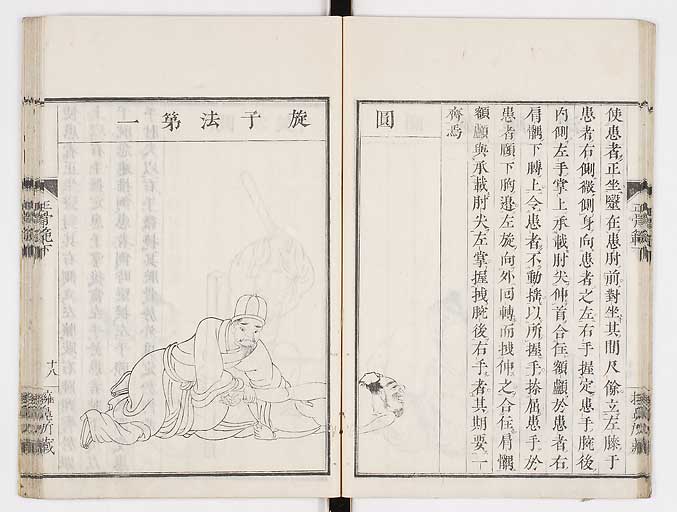 使患者正坐醫在患肘前對坐其間尺餘立左膝于
患者右側微側身向患者之左右手握定患手腕後
內側左手掌上承載肘尖伸首合在額顱於患者右
肩髃下膊上令患者不動搖以所握手捺屈患手於
患者頤下胸邊左旋向外回轉而拽伸之合在肩髃
額顱與承載肘尖左掌握拽腕後右手者其期要一
齊焉
圖
旋子法第一
正骨範下
十八
所藏